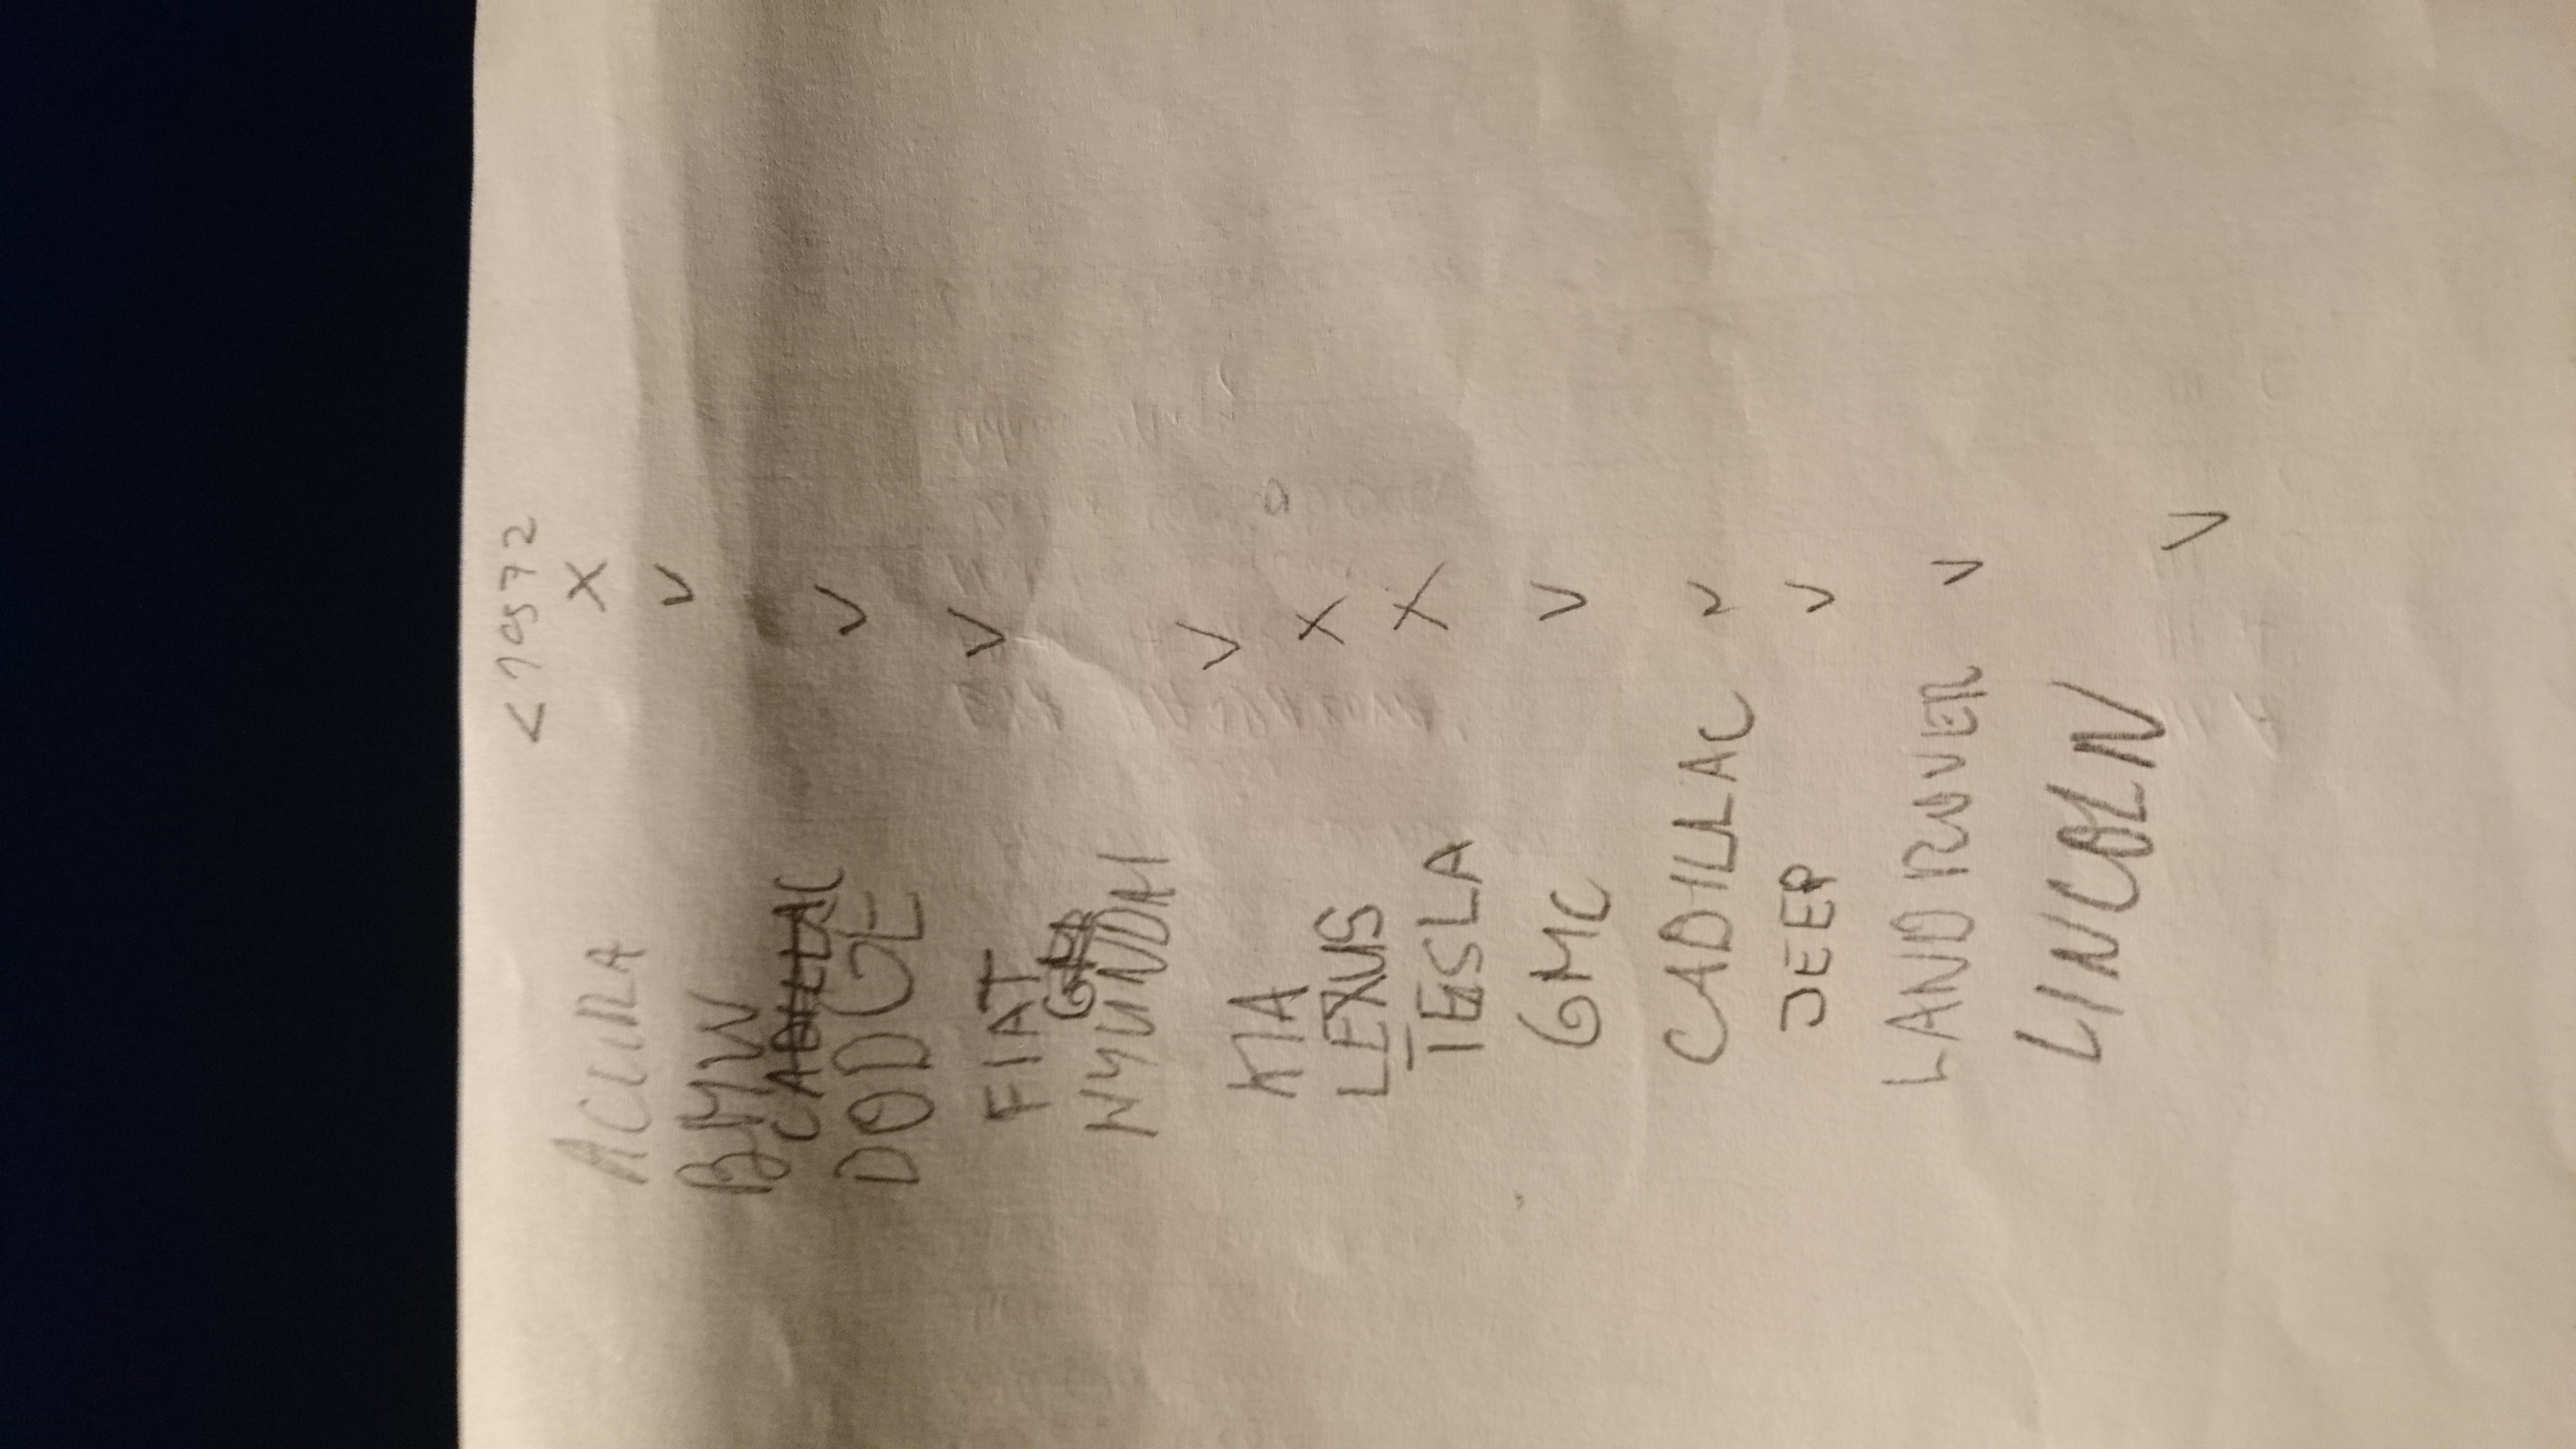 <10572
ACURA X
BMW V
CADILLAC
DODGE V
FIAT V
HYUNDAI V
KIA X
LEXUS X
TESLA V
GMC V
CADILLAC V
JEEP V
LAND ROVER V
LINCOLN